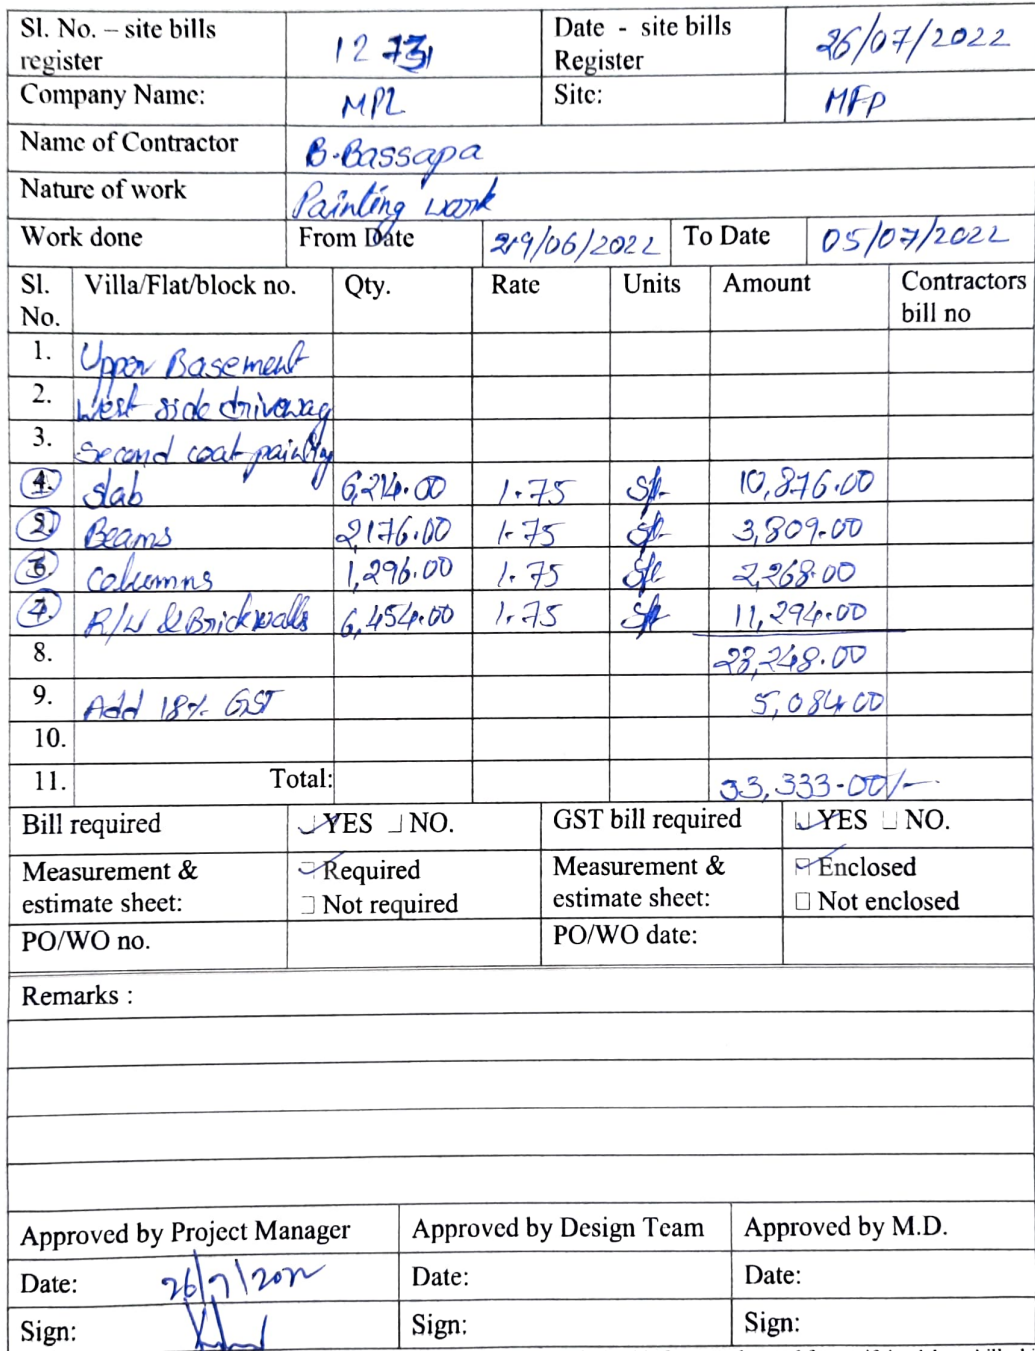 Sl. No. – site bills register 12 731 Date - site bills Register 26/07/2022
Company Name: MPL Site: MFP
Name of Contractor B-Bassapa
Nature of work Painting work
Work done From Date 29/06/2022 To Date 05/07/2022
Sl. No. Villa/Flat/block no. Qty. Rate Units Amount Contractors bill no
1. Upper Basement
2. West side driveway
3. Second coat painting
4. Slab 6,214.00 1.75 Sft 10,876.00
5. Beams 2176.00 1.75 Sft 3,809.00
6. Columns 1,296.00 1.75 Sft 2,268.00
7. R/W & Brickwalls 6,454.00 1.75 Sft 11,294.00
8. 28,248.00
9. Add 18% GST 5,084.00
10.
11. Total: 33,333-00/-
Bill required YES NO. GST bill required YES NO.
Measurement & estimate sheet: Required Not required Measurement & estimate sheet: Enclosed Not enclosed
PO/WO no. PO/WO date:
Remarks :
Approved by Project Manager Approved by Design Team Approved by M.D.
Date: 26/7/2022 Date: Date:
Sign: Sign: Sign: